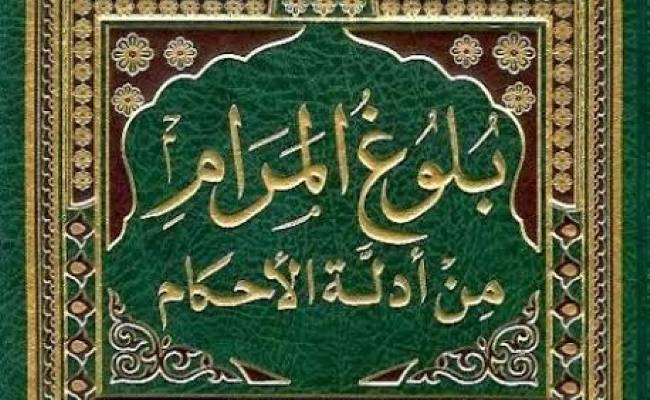 بُلُوغُ المَرَامِ
مِنْ أَدِلَّةِ الأَحْكَامِ